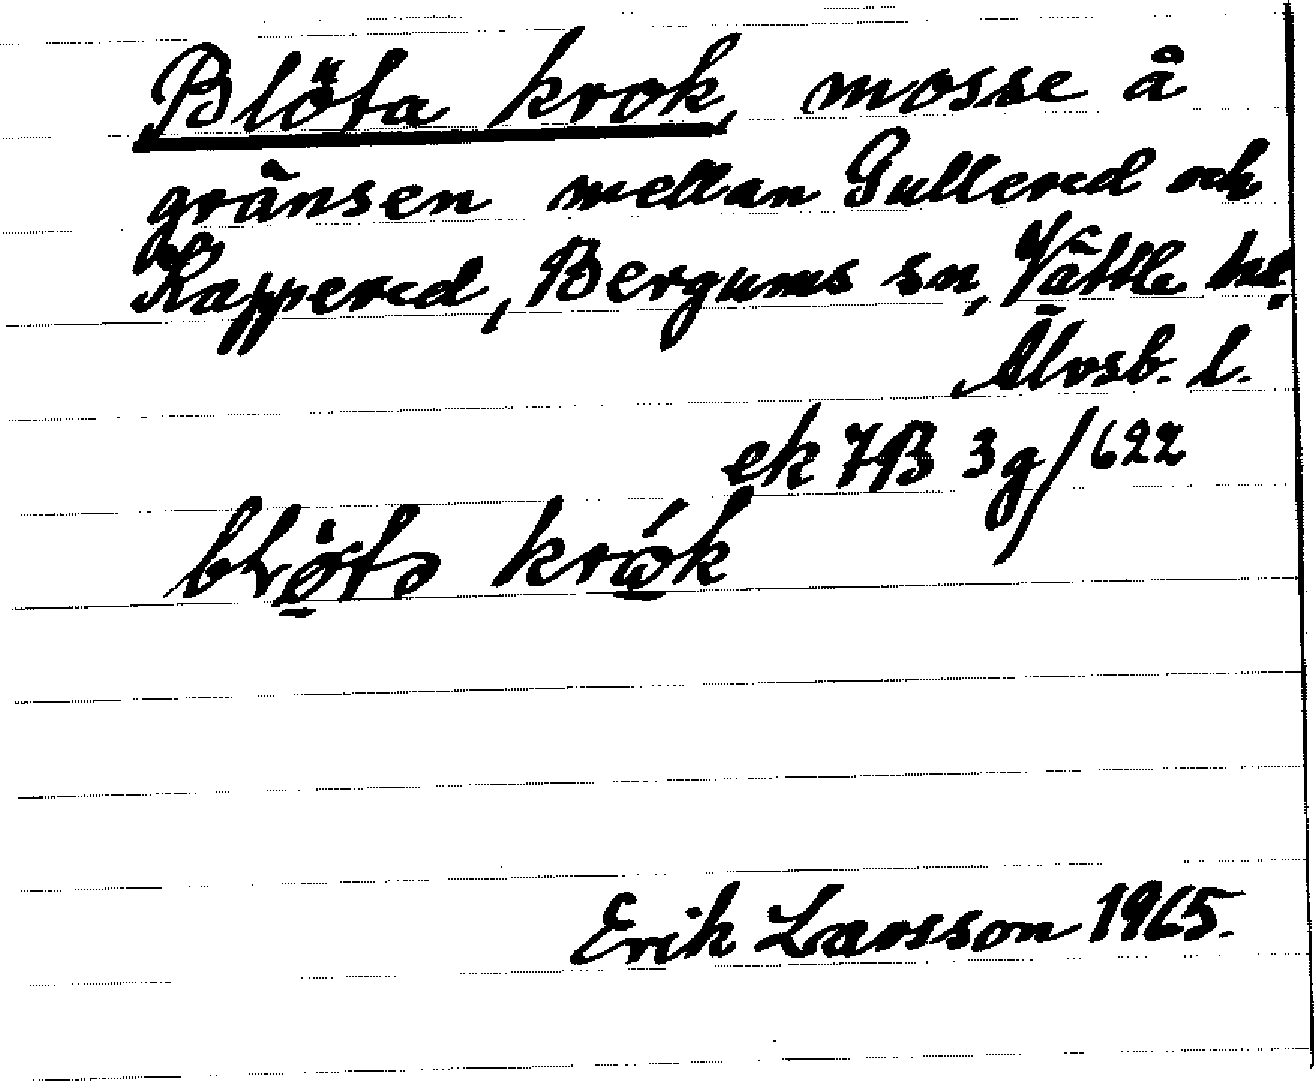 Blöta krok, mosse å
gränsen mellan Gullered och
Kappered, Bergums sn, Vättle hd,
Älvsb. l.
ek 7B 3g/622
krok
Erik Larsson 1965.